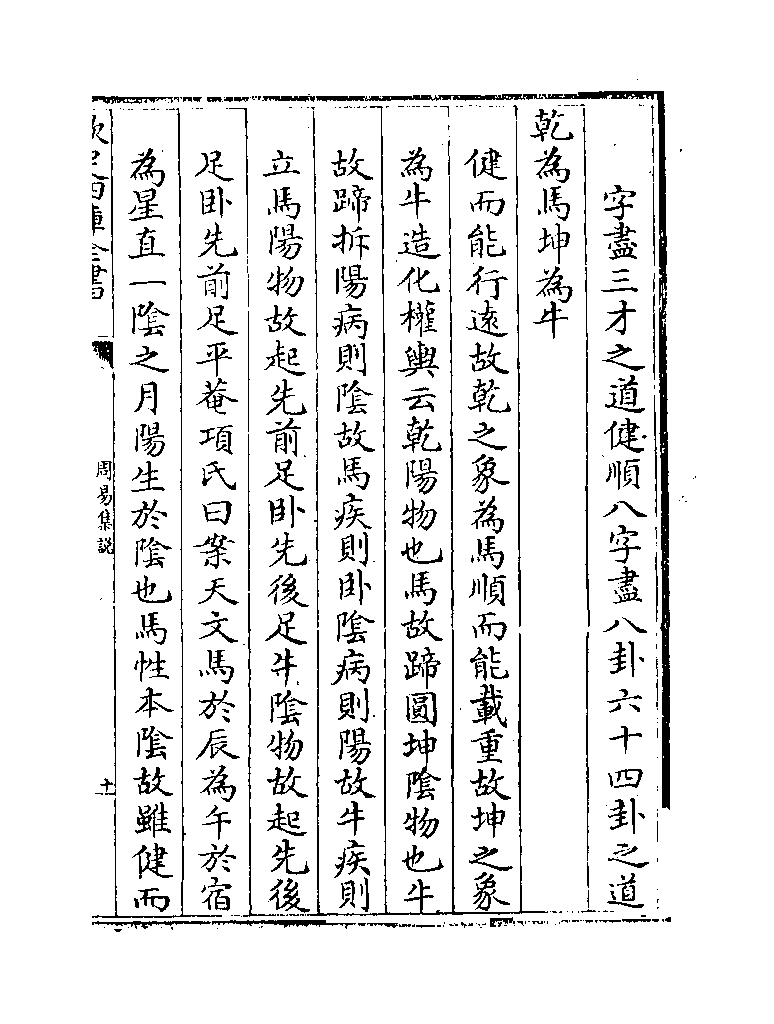 字盡三才之道健順八字盡八卦六十四卦之道
乾為馬坤為牛
健而能行遠故乾之象為馬順而能載重故坤之象
為牛造化權輿云乾陽物也馬故蹄圓坤陰物也牛
故蹄拆陽病則陰故馬疾則卧陰病則陽故牛疾則
立馬陽物故起先前足卧先後足牛陰物故起先後
足卧先前足平菴項氏曰案天文馬於辰為午於宿
為星直一陰之月陽生於陰也馬性本陰故雖健而
欽定四庫全書
周易集說
十一